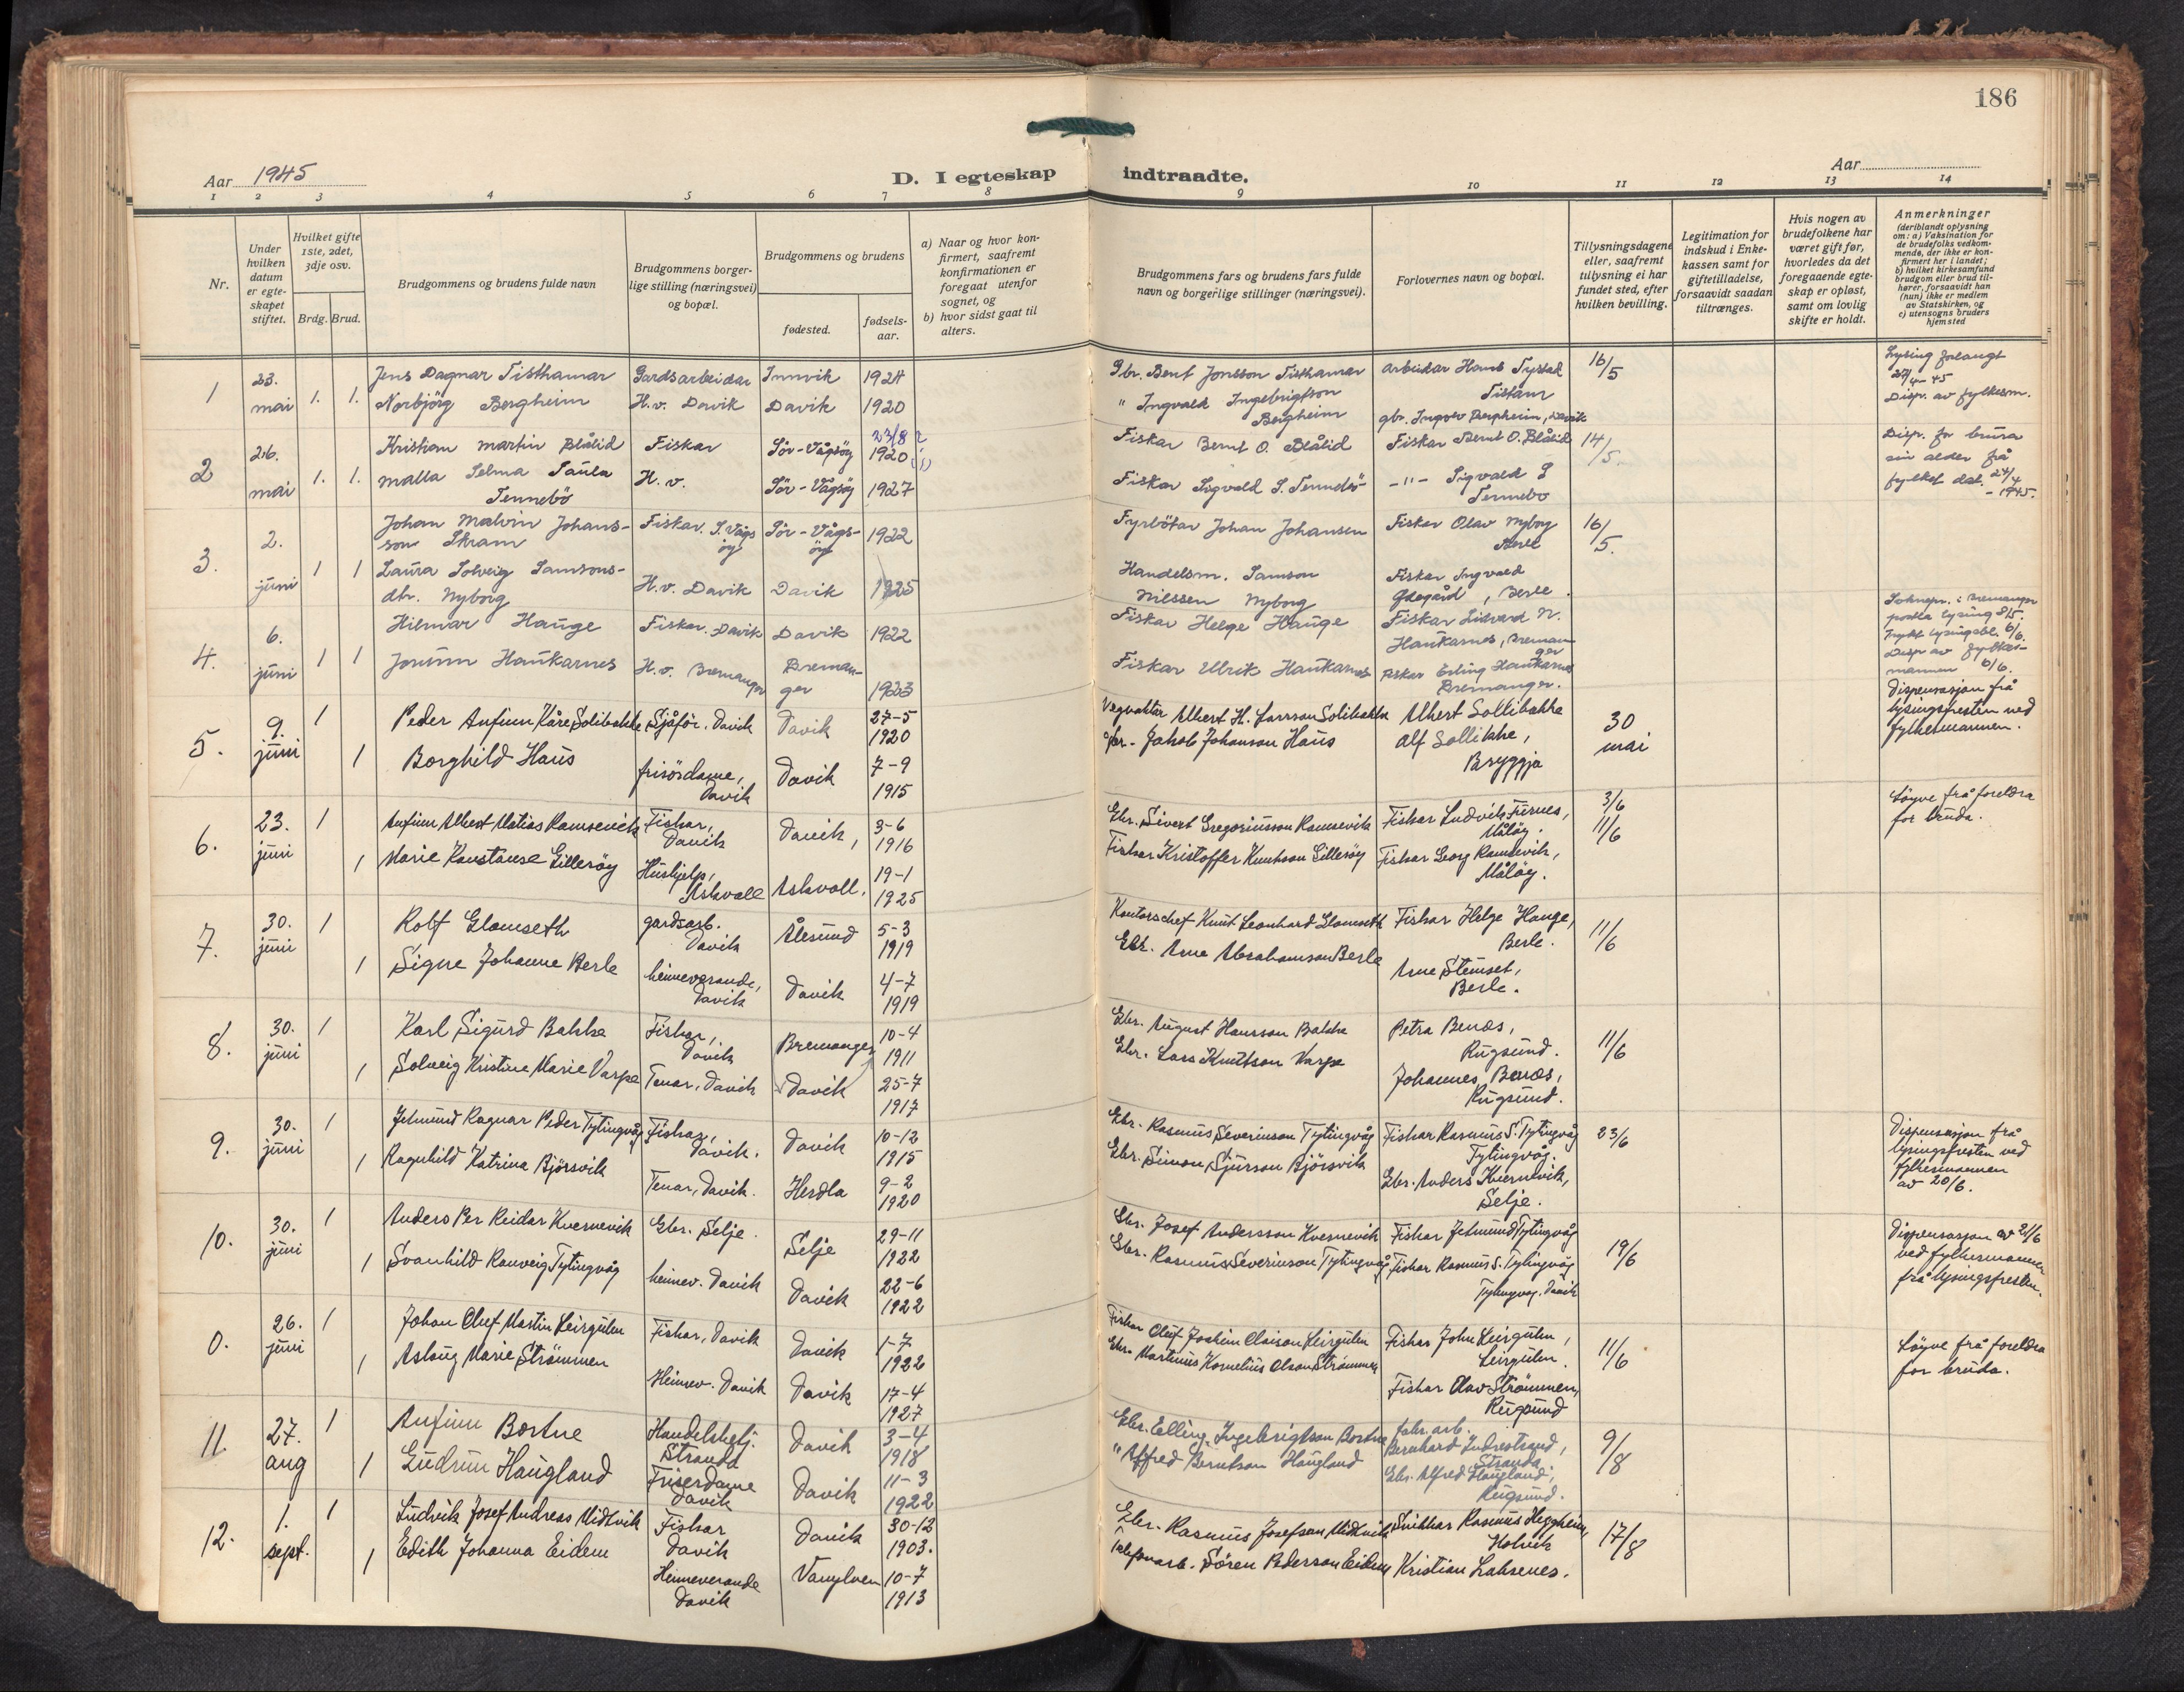 186
Aar 1945
D. I egteskap indtraadte.
Aar
1 2 3 4 5 6 7 8 9 10 11 12 13 14
Nr.
Under hvilken datum er egte-skapet stiftet.
Hvilket gifte 1ste, 2det, 3dje osv.
Brdg. Brud.
Brudgommens og brudens fulde navn
Brudgommens borger-lige stilling (næringsvei) og bopæl.
Brudgommens og brudens
fødested.
fødsels-aar.
a) Naar og hvor kon-firmert, saafremt konfirmationen er foregaat utenfor sognet, og
b) hvor sidst gaat til alters.
Brudgommens fars og brudens fars fulde navn og borgerlige stillinger (næringsvei).
Forlovernes navn og bopæl.
Tillysningsdagene eller, saafremt tillysning ei har fundet sted, efter hvilken bevilling.
Legitimation for indskud i Enke-kassen samt for giftetilladelse, forsaavidt saadan tiltrænges.
Hvis nogen av brudefolkene har været gift før, hvorledes da det foregaaende egte-skap er opløst, samt om lovlig skifte er holdt.
Anmerkninger (deriblandt oplysning om: a) Vaksination for de brudefolks vedkom-mende, der ikke er kon-firmert her i landet; b) hvilket kirkesamfund brudgom eller brud til-hører, forsaavidt han (hun) ikke er medlem av Statskirken, og c) utensogns bruders hjemsted
1 23. mai 1. 1. Jens Dagnar Tisthamar Gardsarbeidar Innvik 1924 Gbr. Bent Jonsson Tisthamar arbeidar Hans Tystad Tistam 16/5 Lysing forlangt 27/4-45 Disp. av fylkesm.
Norbjörg Bergheim H.v. Davik Davik 1920 " Ingvald Ingebrigtson Bergheim gbr. Ingvar Bergheim, Davik
2 26. mai 1. 1. Kristian Martin Blålid Fiskar Sör-Vågsöy 23/8 1920 Fiskar Bernt O. Blålid Fiskar Bernt O. Blålid 14/5. Disp. for brura sin alder frå fylket dat. 24/4 - 1945.
Malla Selma Paula Tennebö H.v. Sör-Vågsöy 1927 Fiskar Sigvald S. Tennebö -"- Sigvald S Tennebo
3. 2. juni 1 1 Johan Malvin Johans-son Skram Fiskar. S. Vågsöy Sör-Vågs-öy 1922 Fyrbötar Johan Johansen Fiskar Olav Nyborg Berle 16/5.
Laura Solveig Samsons-dtr. Nyborg H.v. Davik Davik 1925 Handelsm. Samson Nilssen Nyborg Fiskar Ingvald Ødegård, Berle.
4. 6. juni 1 1 Hilmar Hauge Fiskar. Davik Davik 1922 Fiskar Helge Hauge Fiskar Sivard N. Haukarnes, Bremanger Sokнepr. i Bremanger lysing 8/5. lysingsbl. 6/6. Disp av fylkes-mannen 6/6.
Jorunn Haukarnes H.v. Bremanger Breman-ger 1923 Fiskar Ulrik Haukarnes Fiskar Erling Haukarnes Bremanger.
5. 9. juni 1 Peder Anfinn Kåre Solibakke Sjåför. Davik Davik 27-5 1920 Vegvaktar Albert H. Larsson Solibakke Albert Sollibakke 30 mai Dispensasjon frå lysingsfresten ved fylkesmannen.
1 Borghild Haus frisördame, Davik Davik 7-9 1915 Gbr. Jakob Johanson Haus Alf Sollibke, Bryggja
6. 23. juni 1 Anfinn Albert Matias Ramsevik Fiskar, Davik Davik, 3-6 1916 Gbr. Sivert Gregoriusson Ramsevik Fiskar Ludvik Furnes, Målöy. 3/6 11/6 Löyve frå foreldra for bruda.
1 Marie Konstanse Gillesöy Hushjelp, Askvoll Askvoll. 19-1 1925 Fiskar Kristoffer Knutson Gillesöy Fiskar Georg Ramsevik, Målöy.
7. 30. juni 1 Rolf Glomseth gardsarb. Davik Ålesund 5-3 1919 Kontorschef Knut Leonhard Glomseth Fiskar Helge Hauge, Berle. 11/6
1 Signe Johanne Berle heimeverande, Davik Davik 4-7 1919 Gbr. Arne Abrahamson Berle Arne Stemset, Berle.
8. 30. juni 1 Karl Sigurd Bakke Fiskar, Davik Bremanger 10-4 1911 Gbr. August Hansson Bakke Petra Benæs, Rugsund. 11/6
1 Solveig Kristine Marie Varpe Tenar, Davik Davik 25-7 1917 Gbr. Lars Knutson Varpe Johannes Benæs, Rugsund.
9. 30. juni 1 Jetmund Ragnar Peder Tytingvåg Fiskar, Davik. Davik 10-12 1915 Gbr. Rasmus Severinson Tytingvåg Fiskar Rasmus S. Tytingvåg Tytingvåg. 23/6 Dispensasjon frå lysingsfresten ved fylkesmannen av 20/6.
1 Ragnhild Katrina Björsvik Tenar, Davik. Herdla 9-2 1920 Gbr. Simon Sjurson Björsvik Gbr. Anders Kvernevik, Selje.
10. 30. juni 1 Anders Per Reidar Kvernevik Gbr. Selje. Selje 29-11 1922 Gbr. Josef Andersson Kvernevik Fiskar Jetmund Tytingvåg 19/6 Dispensasjon av 21/6 ved fylkesmannen frå lysingsfresten.
1 Svanhild Ranveig Tytingvåg heimev. Davik Davik 22-6 1922 Gbr. Rasmus Severinson Tytingvåg Fiskar Rasmus S. Tytingvåg Tytingvåg. Davik
0. 26. juni 1 Johan Oluf Martin Leirgulen Fiskar, Davik Davik 1-7 1922 Fiskar Oluf Joakim Claison Leirgulen Fiskar John Leirgulen, Leirgulen. 11/6 Löyve frå foreldra for bruda.
1 Aslaug Marie Strömmen Heimev. Davik Davik 17-4 1927 Gbr. Martinus Kornelius Olson Strömmen Fiskar Olav Strömmen, Rugsund
11. 27. aug 1 Anfinn Bortne Handelsbetj. Stranda Davik 3-4 1918 Gbr. Elling Ingebrigtson Bortne fabr. arb. Bernhard Indrestrand, Stranda 9/8
1 Gudrun Haugland Friserdame Davik Davik 11-3 1922 " Alfred Berntson Haugland Gbr. Alfred Haugland, Rugsund.
12. 1. sept. 1 Ludvik Josef Andreas Midtvik Fiskar Davik Davik 30-12 1903. Gbr. Rasmus Josefson Midtvik Snikkar Rasmus Heggheim, Holvik 17/8
1 Edith Johanna Eidem Heimeverande Davik Vanylven 10-7 1913 Telefonarb. Sören Pederson Eidem Kristian Laksenes.